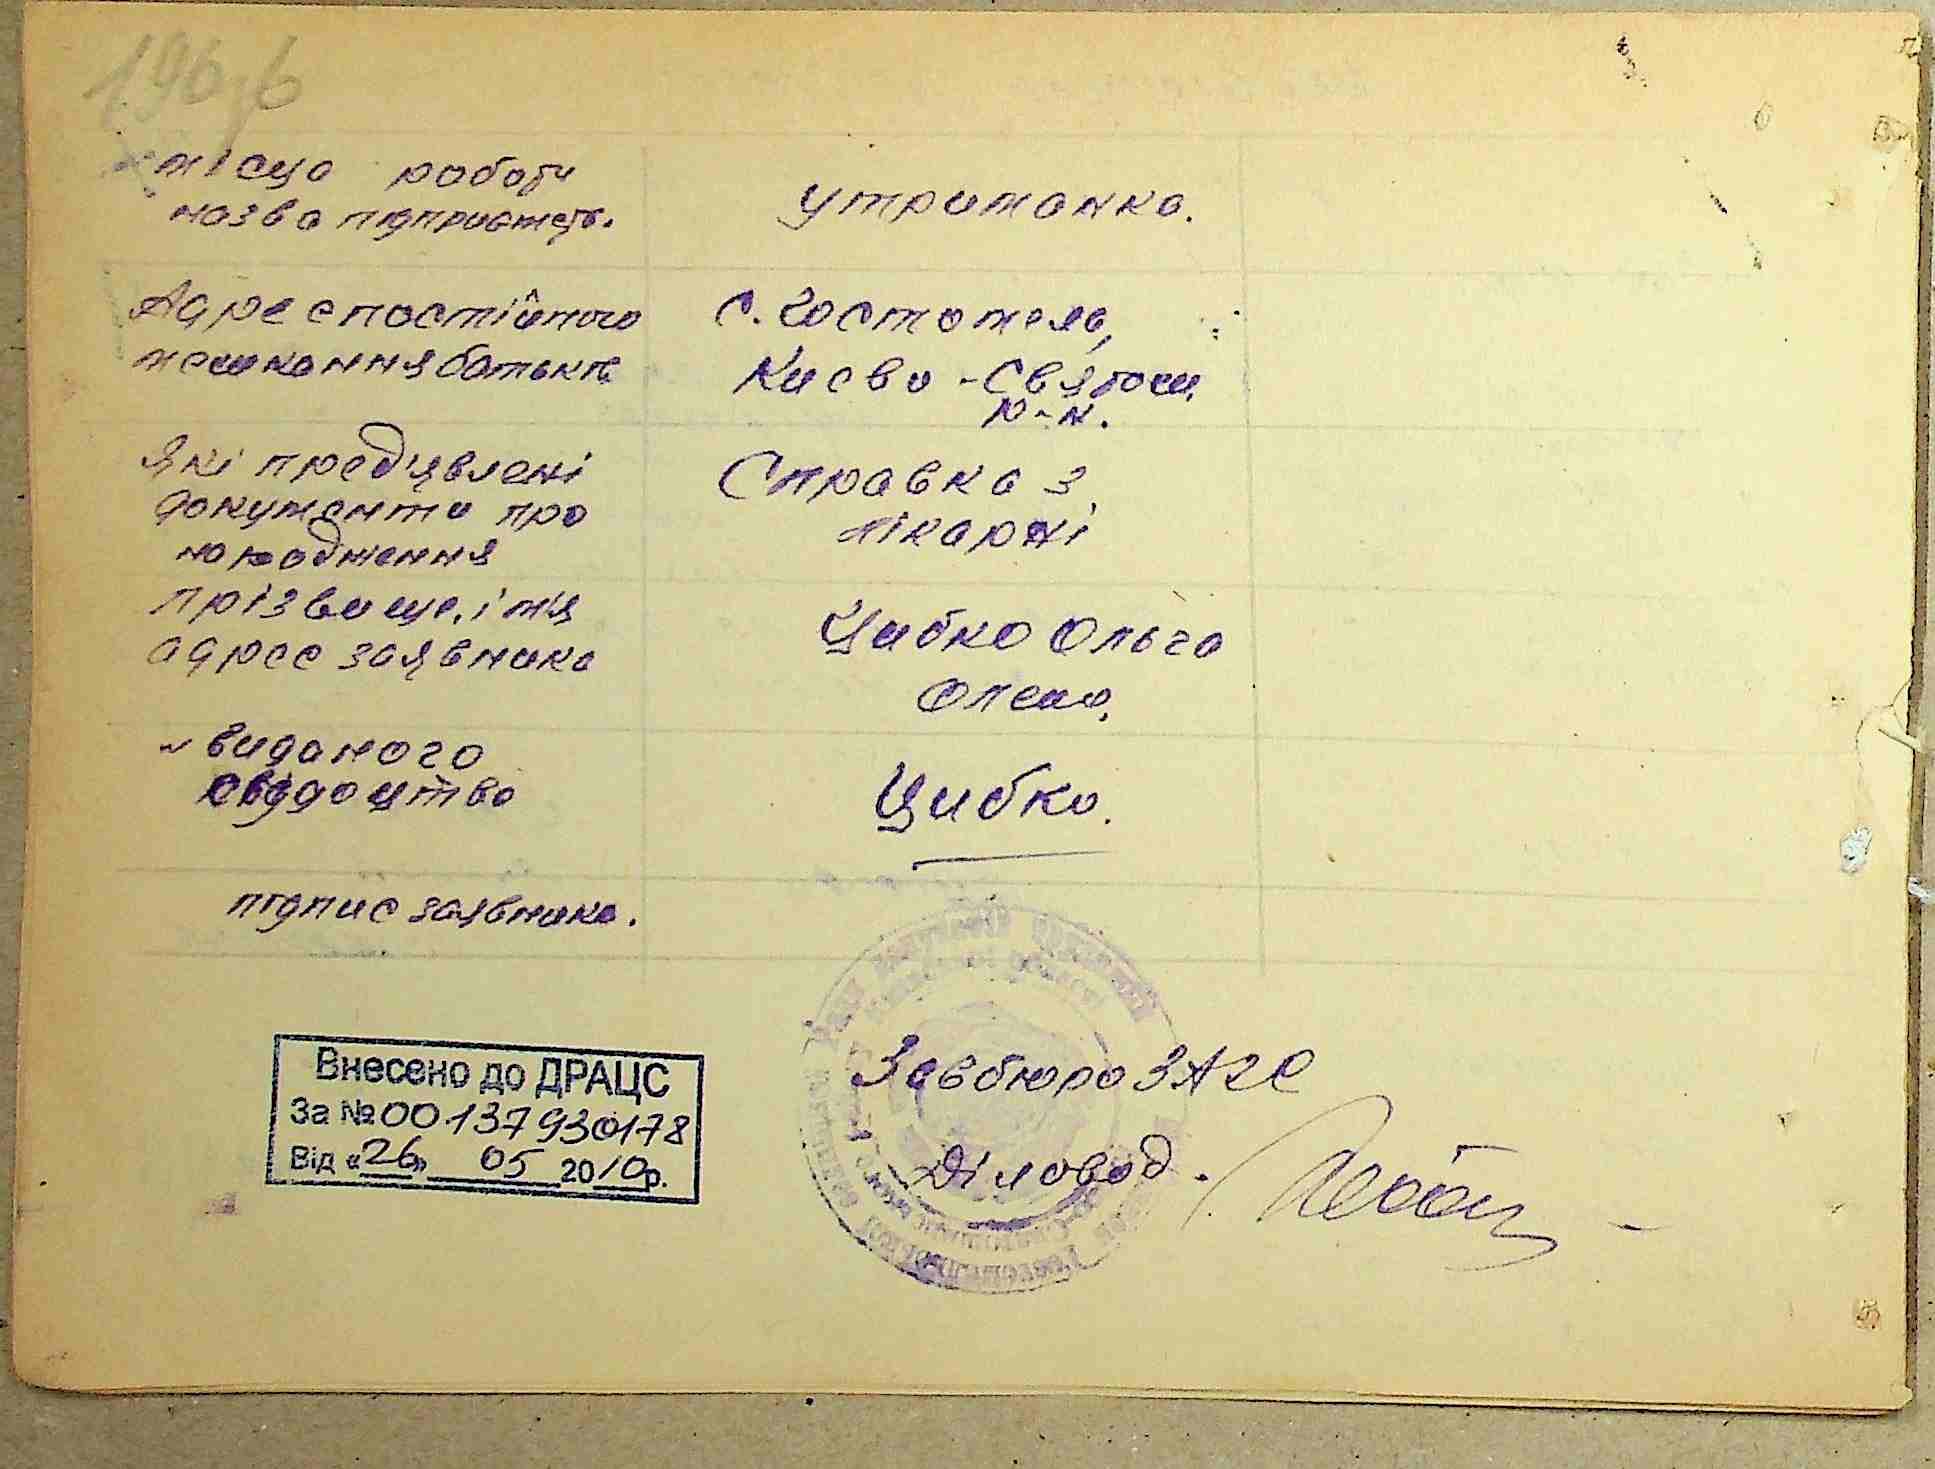 місце роботи
назва підприємств.
утриманка.
Адрес постійного
мешкання батьків
с. Гостомель,
Києво-Святош.
р-н.
Які пред'явлені
документи про
народження
Справка з
лікарні
прізвище, ім'я
адрес заявника
Цибко Ольга
Олекс.
№ виданого
свідоцтва
Цибко.
підпис заявника.
Внесено до ДРАЦС
За №00137930178
Від «26» 05 2010р.
Завбюро ЗАГС
Діловод.